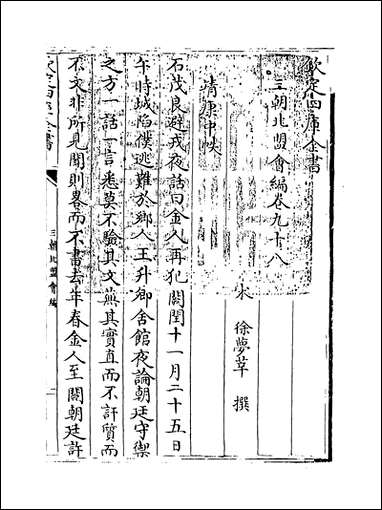 欽定四庫全書
三朝北盟會編卷九十八
宋 徐夢莘 撰
靖康中帙
石茂良避戎夜話曰金人再犯闕閏十一月二十五日
午時城陷僕逃難於鄉人王升卿舍館夜論朝廷守禦
之方一話一言悉莫不驗其文蕪其實直而不訐質而
不文非所見聞則畧而不書去年春金人至闕朝廷許
欽定四庫全書
三朝北盟會編